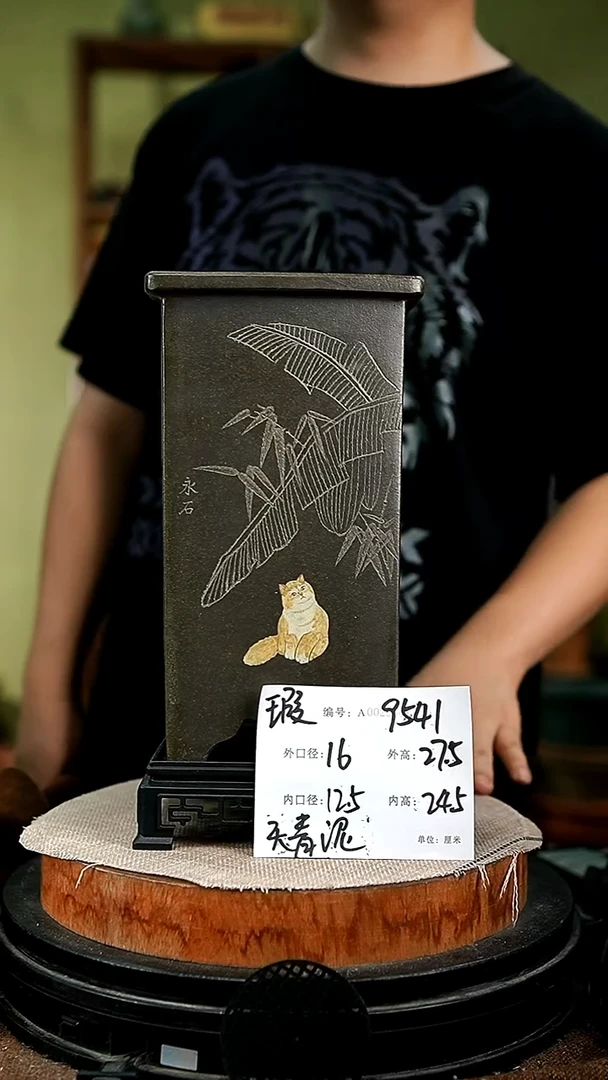 永石
瑕 编号：A002 9541
外口径：16 外高：27.5
内口径：12.5 内高：24.5
天青泥
单位：厘米